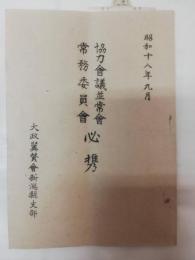 昭和十八年九月
協力會議並常會
常務委員會
必携
大政翼賛會新潟縣支部